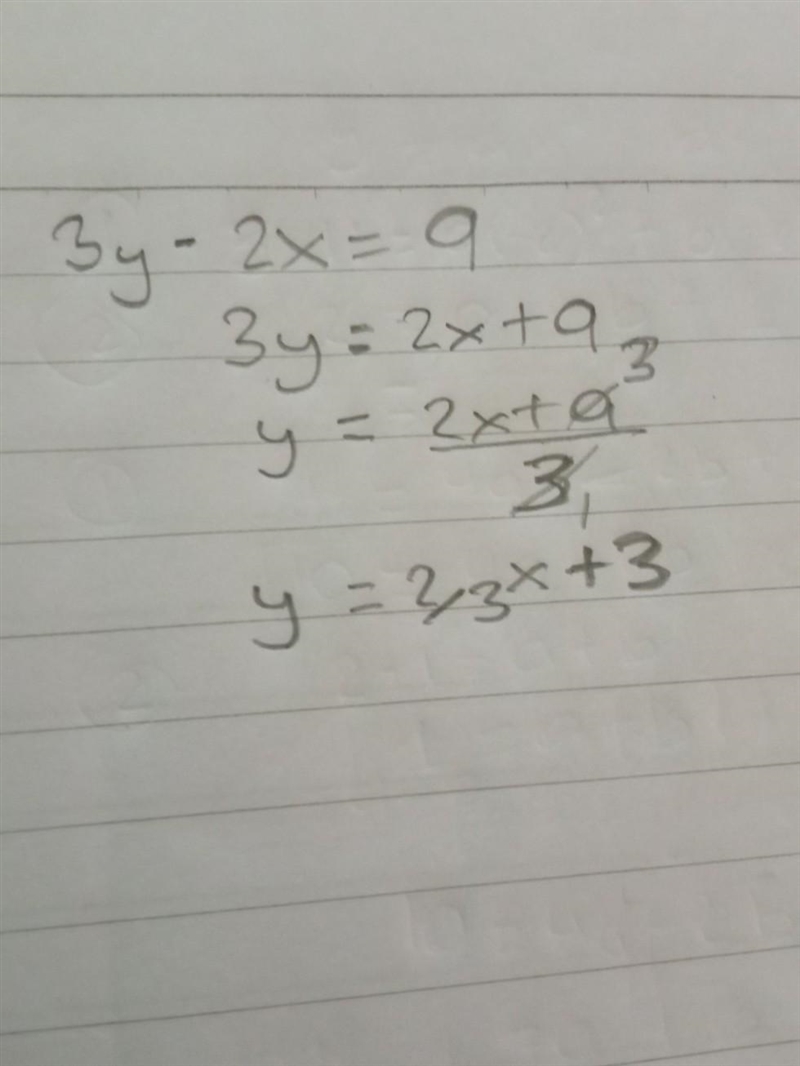 3y - 2x = 9
3y = 2x + 9
y = (2x + 9 3)/(3 1)
y = 2/3 x + 3